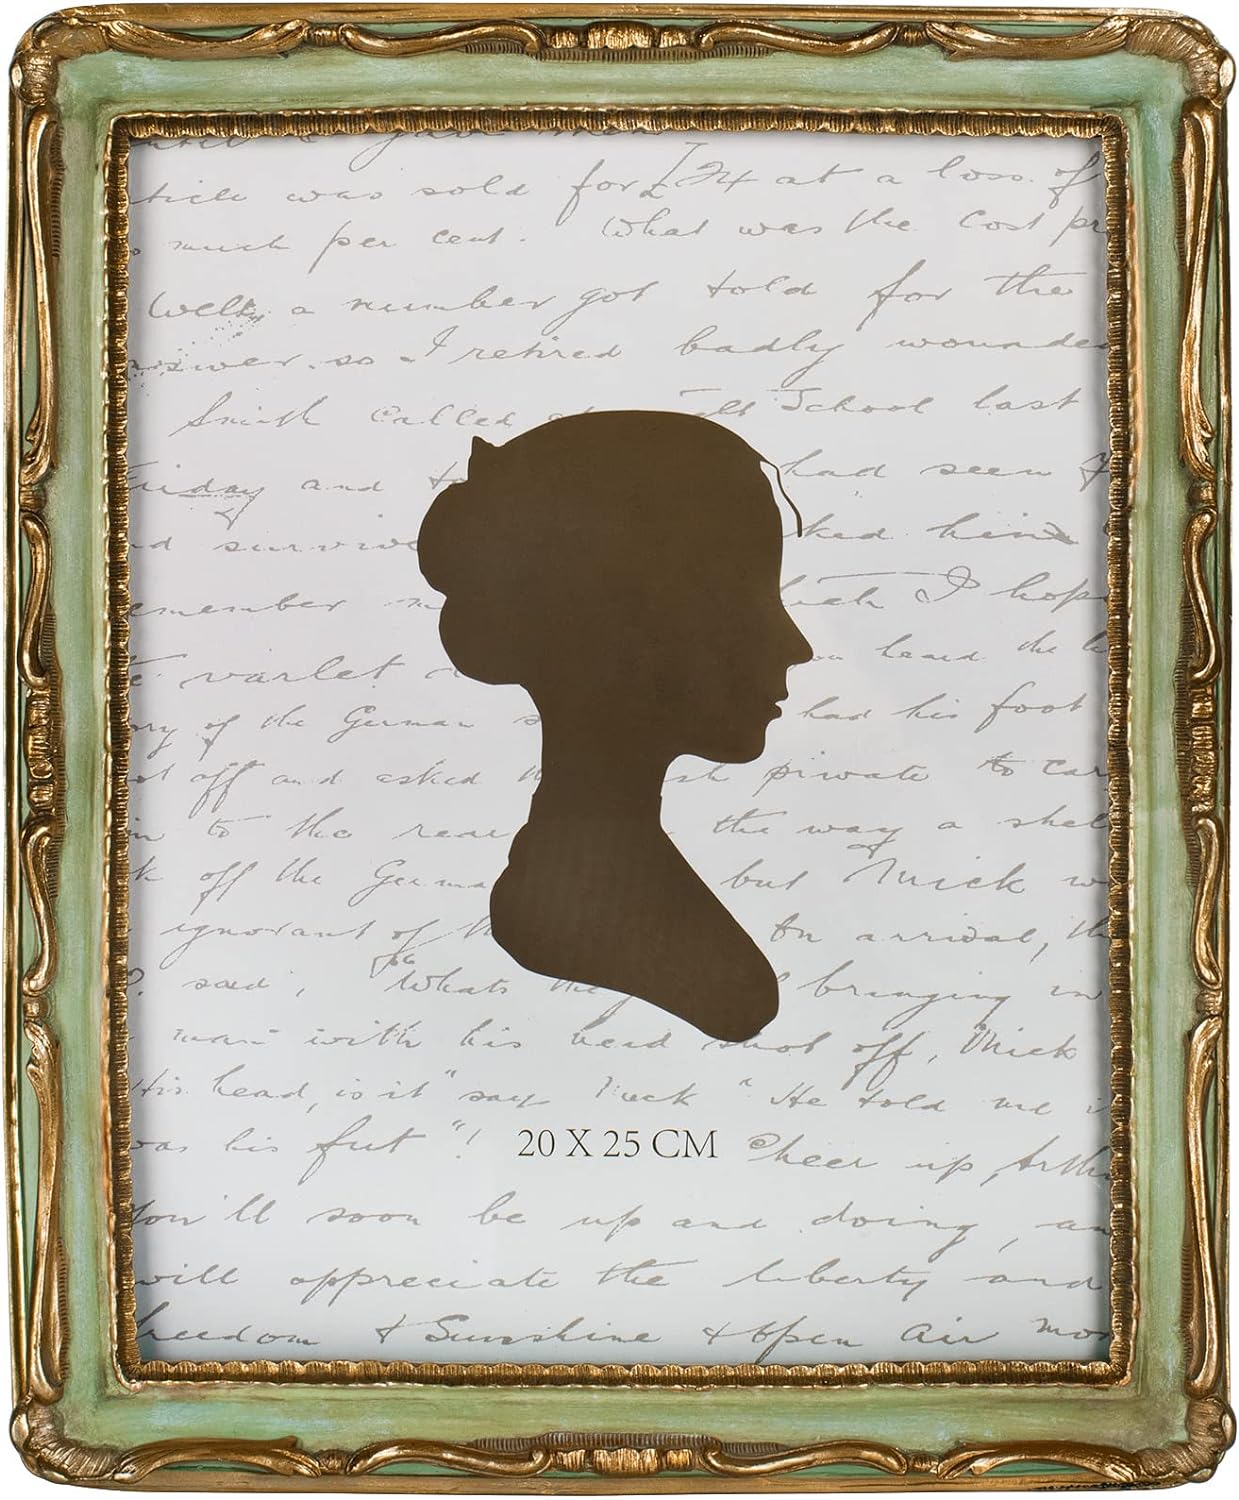 was sold for £24 at a loss of
much per cent. What was the Cost pr
Well, a number got told for the
so I retired badly wounded
Smith called School last
Friday and had seen
him
emember I hope
varlet heard the
ory of the German had his foot
off and asked private to car
to the rear the way a shel
off the Germa but Mick w
ignorant of On arrival, th
said, "Whats bringing in
man with his head shot off, Mick
His head, is it" say "He told me i
was his fut"! 20 X 25 CM Cheer up, Arthu
You'll soon be up and doing, an
will appreciate the liberty and
freedom & Sunshine & open air mo